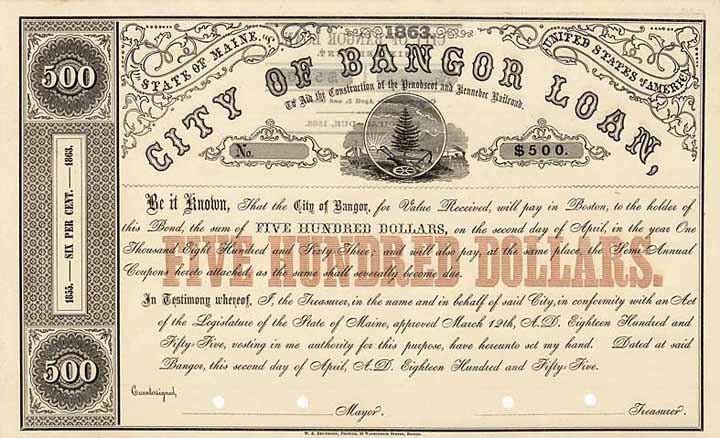 1863.
STATE OF MAINE.
UNITED STATES of AMERICA
CITY OF BANGOR LOAN,
To Aid the Construction of the Penobscot and Kennebec Railroad.
500
No.
$500.
1855. — SIX PER CENT. — 1863.
Be it Known, That the City of Bangor, for Value Received, will pay in Boston, to the holder of
this Bond, the sum of FIVE HUNDRED DOLLARS, on the second day of April, in the year One
Thousand Eight Hundred and Sixty-Three; and will also pay, at the same place, the Semi-Annual
Coupons hereto attached, as the same shall severally become due.
FIVE HUNDRED DOLLARS.
In Testimony whereof, I, the Treasurer, in the name and in behalf of said City, in conformity with an Act
of the Legislature of the State of Maine, approved March 12th, A.D. Eighteen Hundred and
Fifty-Five, vesting in me authority for this purpose, have hereunto set my hand. Dated at said
Bangor, this second day of April, A.D. Eighteen Hundred and Fifty-Five.
500
Countersigned,
Mayor.
Treasurer.